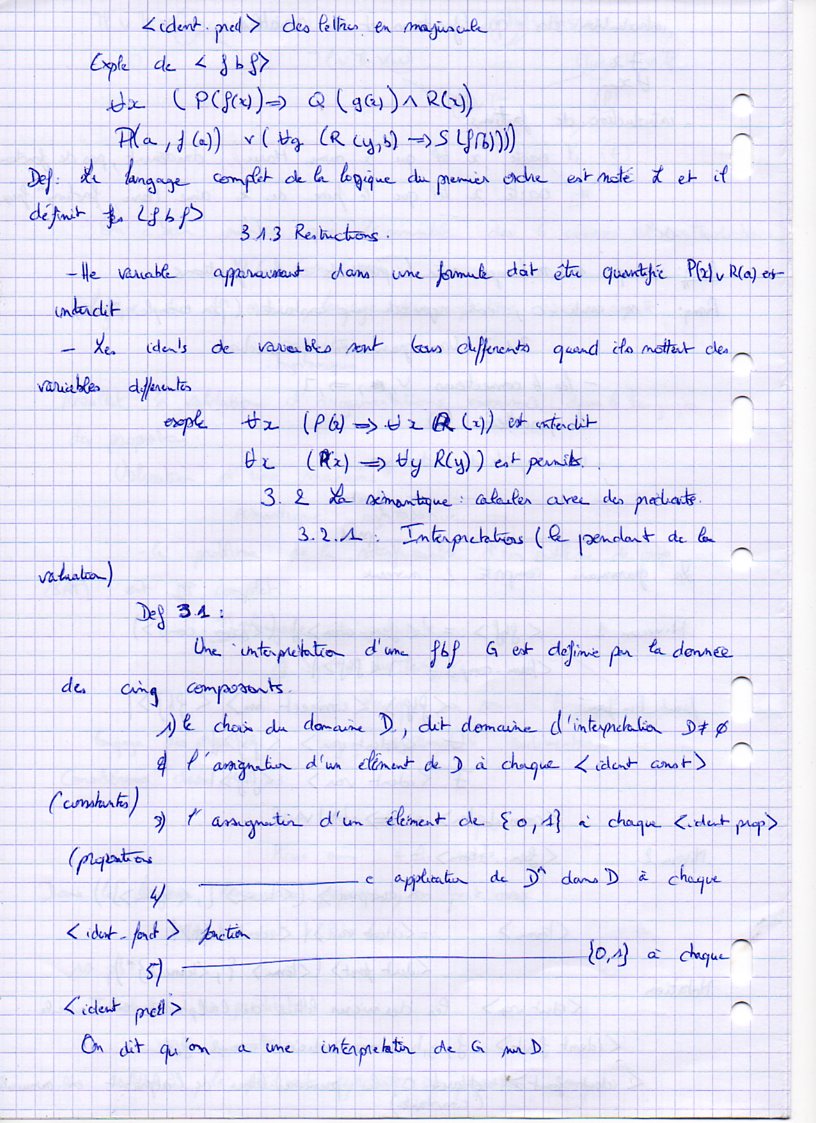 <ident. pred> des lettres en majuscule
Exple de < fbf>
∀x ( P(f(x)) ⇒ Q (g(x)) ∧ R(x))
P(a, f(a)) ∨ ( ∀y (R(y,b) → S(f(b))))
Def: Le langage complet de la logique du premier ordre est noté L et il
définit les <fbf>
3.1.3 Restrictions.
- Tte variable apparaissant dans une formule doit être quantifiée P(x) ∨ R(a) est
interdit
- Les idents de variables sont tous differents quand ils nottent des
variables differentes
exple ∀x (P(x) ⇒ ∀x R(x)) est interdit
∀x (R(x) ⇒ ∀y R(y)) est permis.
3. 2 La sémantique : calculer avec des predicats.
3.2.1 : Interpretations ( le pendant de la
valuation)
Def 3.1 :
Une interprétation d'une fbf G est definie par la donnée
des cinq composants.
1) le choix du domaine D, dit domaine d'interpretation D≠∅
2) l'assignation d'un élément de D à chaque <ident const>
(constantes)
3) l'assignation d'un élément de {0,1} à chaque <ident prop>
(propositions
4) ——— e application de Dⁿ dans D à chaque
<ident-fonct> fonction
5) ——— {0,1} à chaque
<ident pred>
On dit qu'on a une interpretation de G sur D.